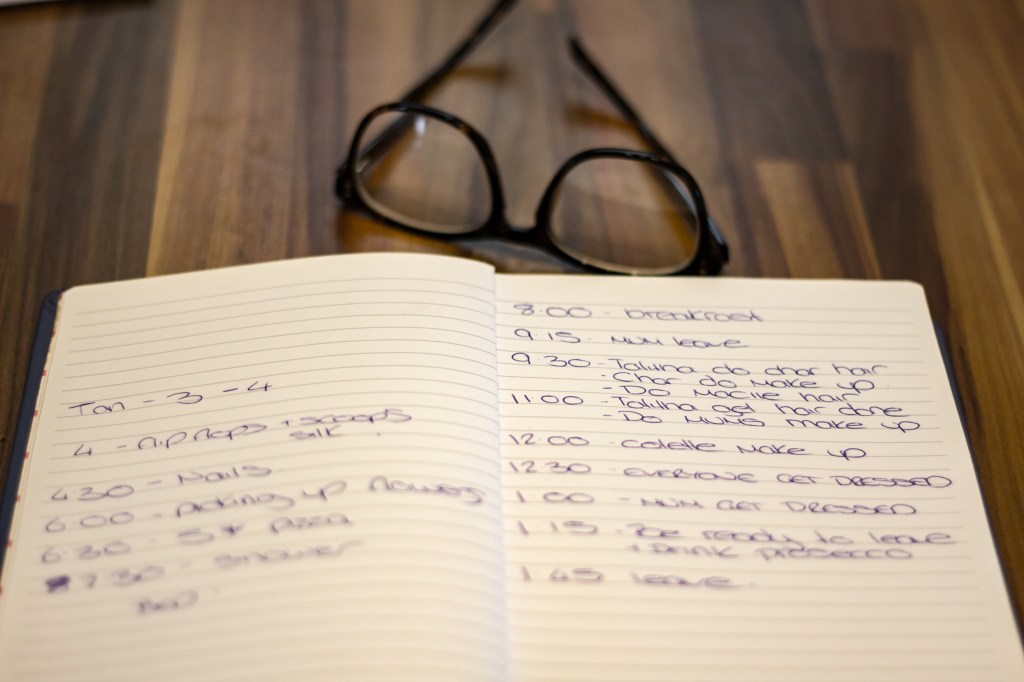 Tan - 3 - 4
4 - flip flops + scoops
silk
4.30 - Nails
6:00 - picking up flowers
6:30 - 5* pizza
7:30 - shower
Bed
8:00 - breakfast
9.15 - Mum leave
9.30 - Talulha do char hair
- Char do make up
- DO Macile hair
11:00 - Talulha get hair done
- Do Mums make up
12.00 - Colette Make up
12.30 - EVERYONE GET DRESSED
1.00 - MUM GET DRESSED
1.15 - Be ready to leave
+ Drink prosecco
1.45 leave